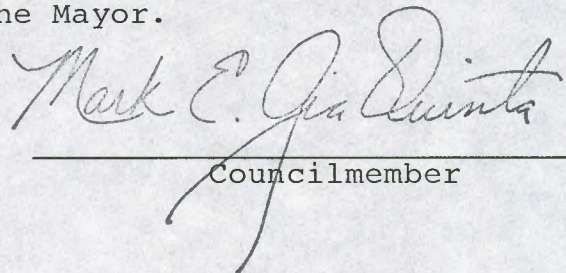 he Mayor.
Mark E. GiaQuinta
Councilmember